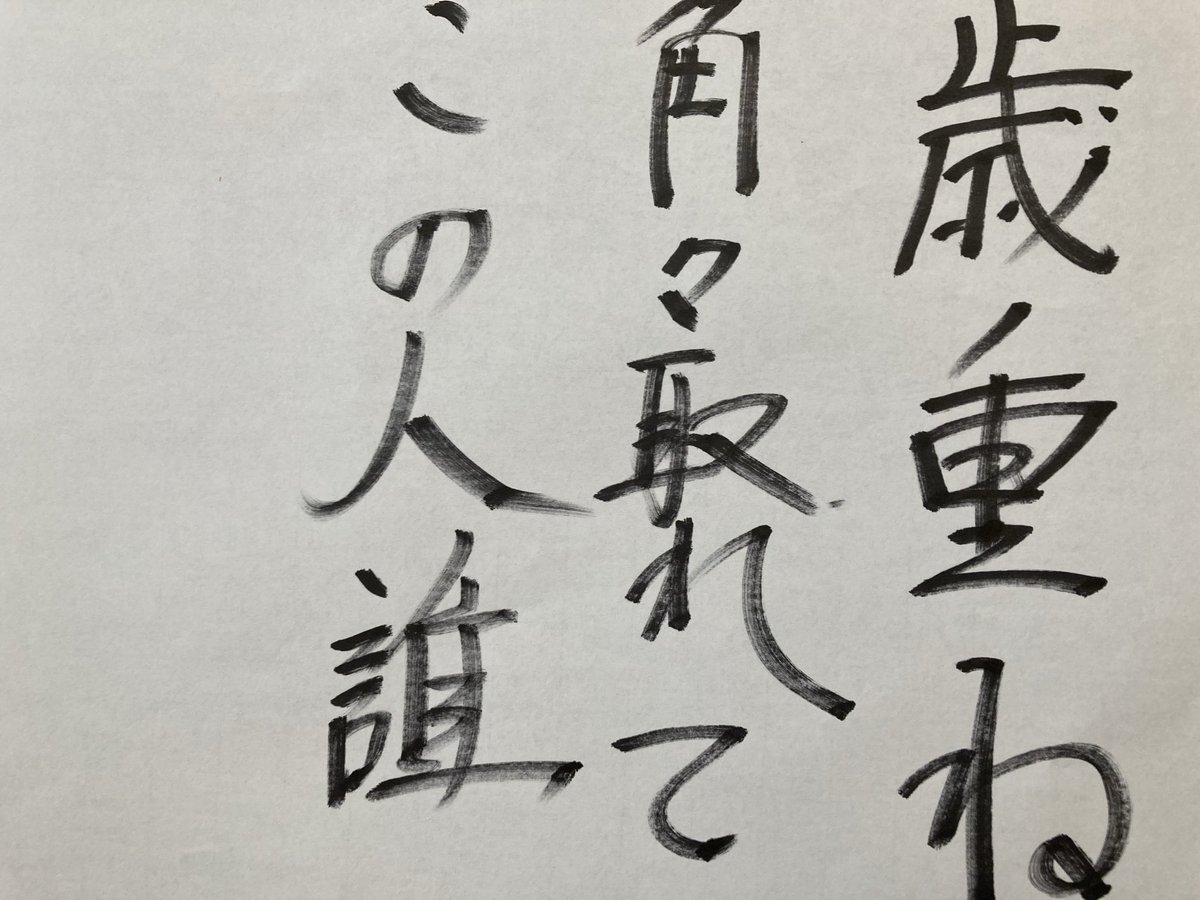 歳重ね
角々取れて
この人誰